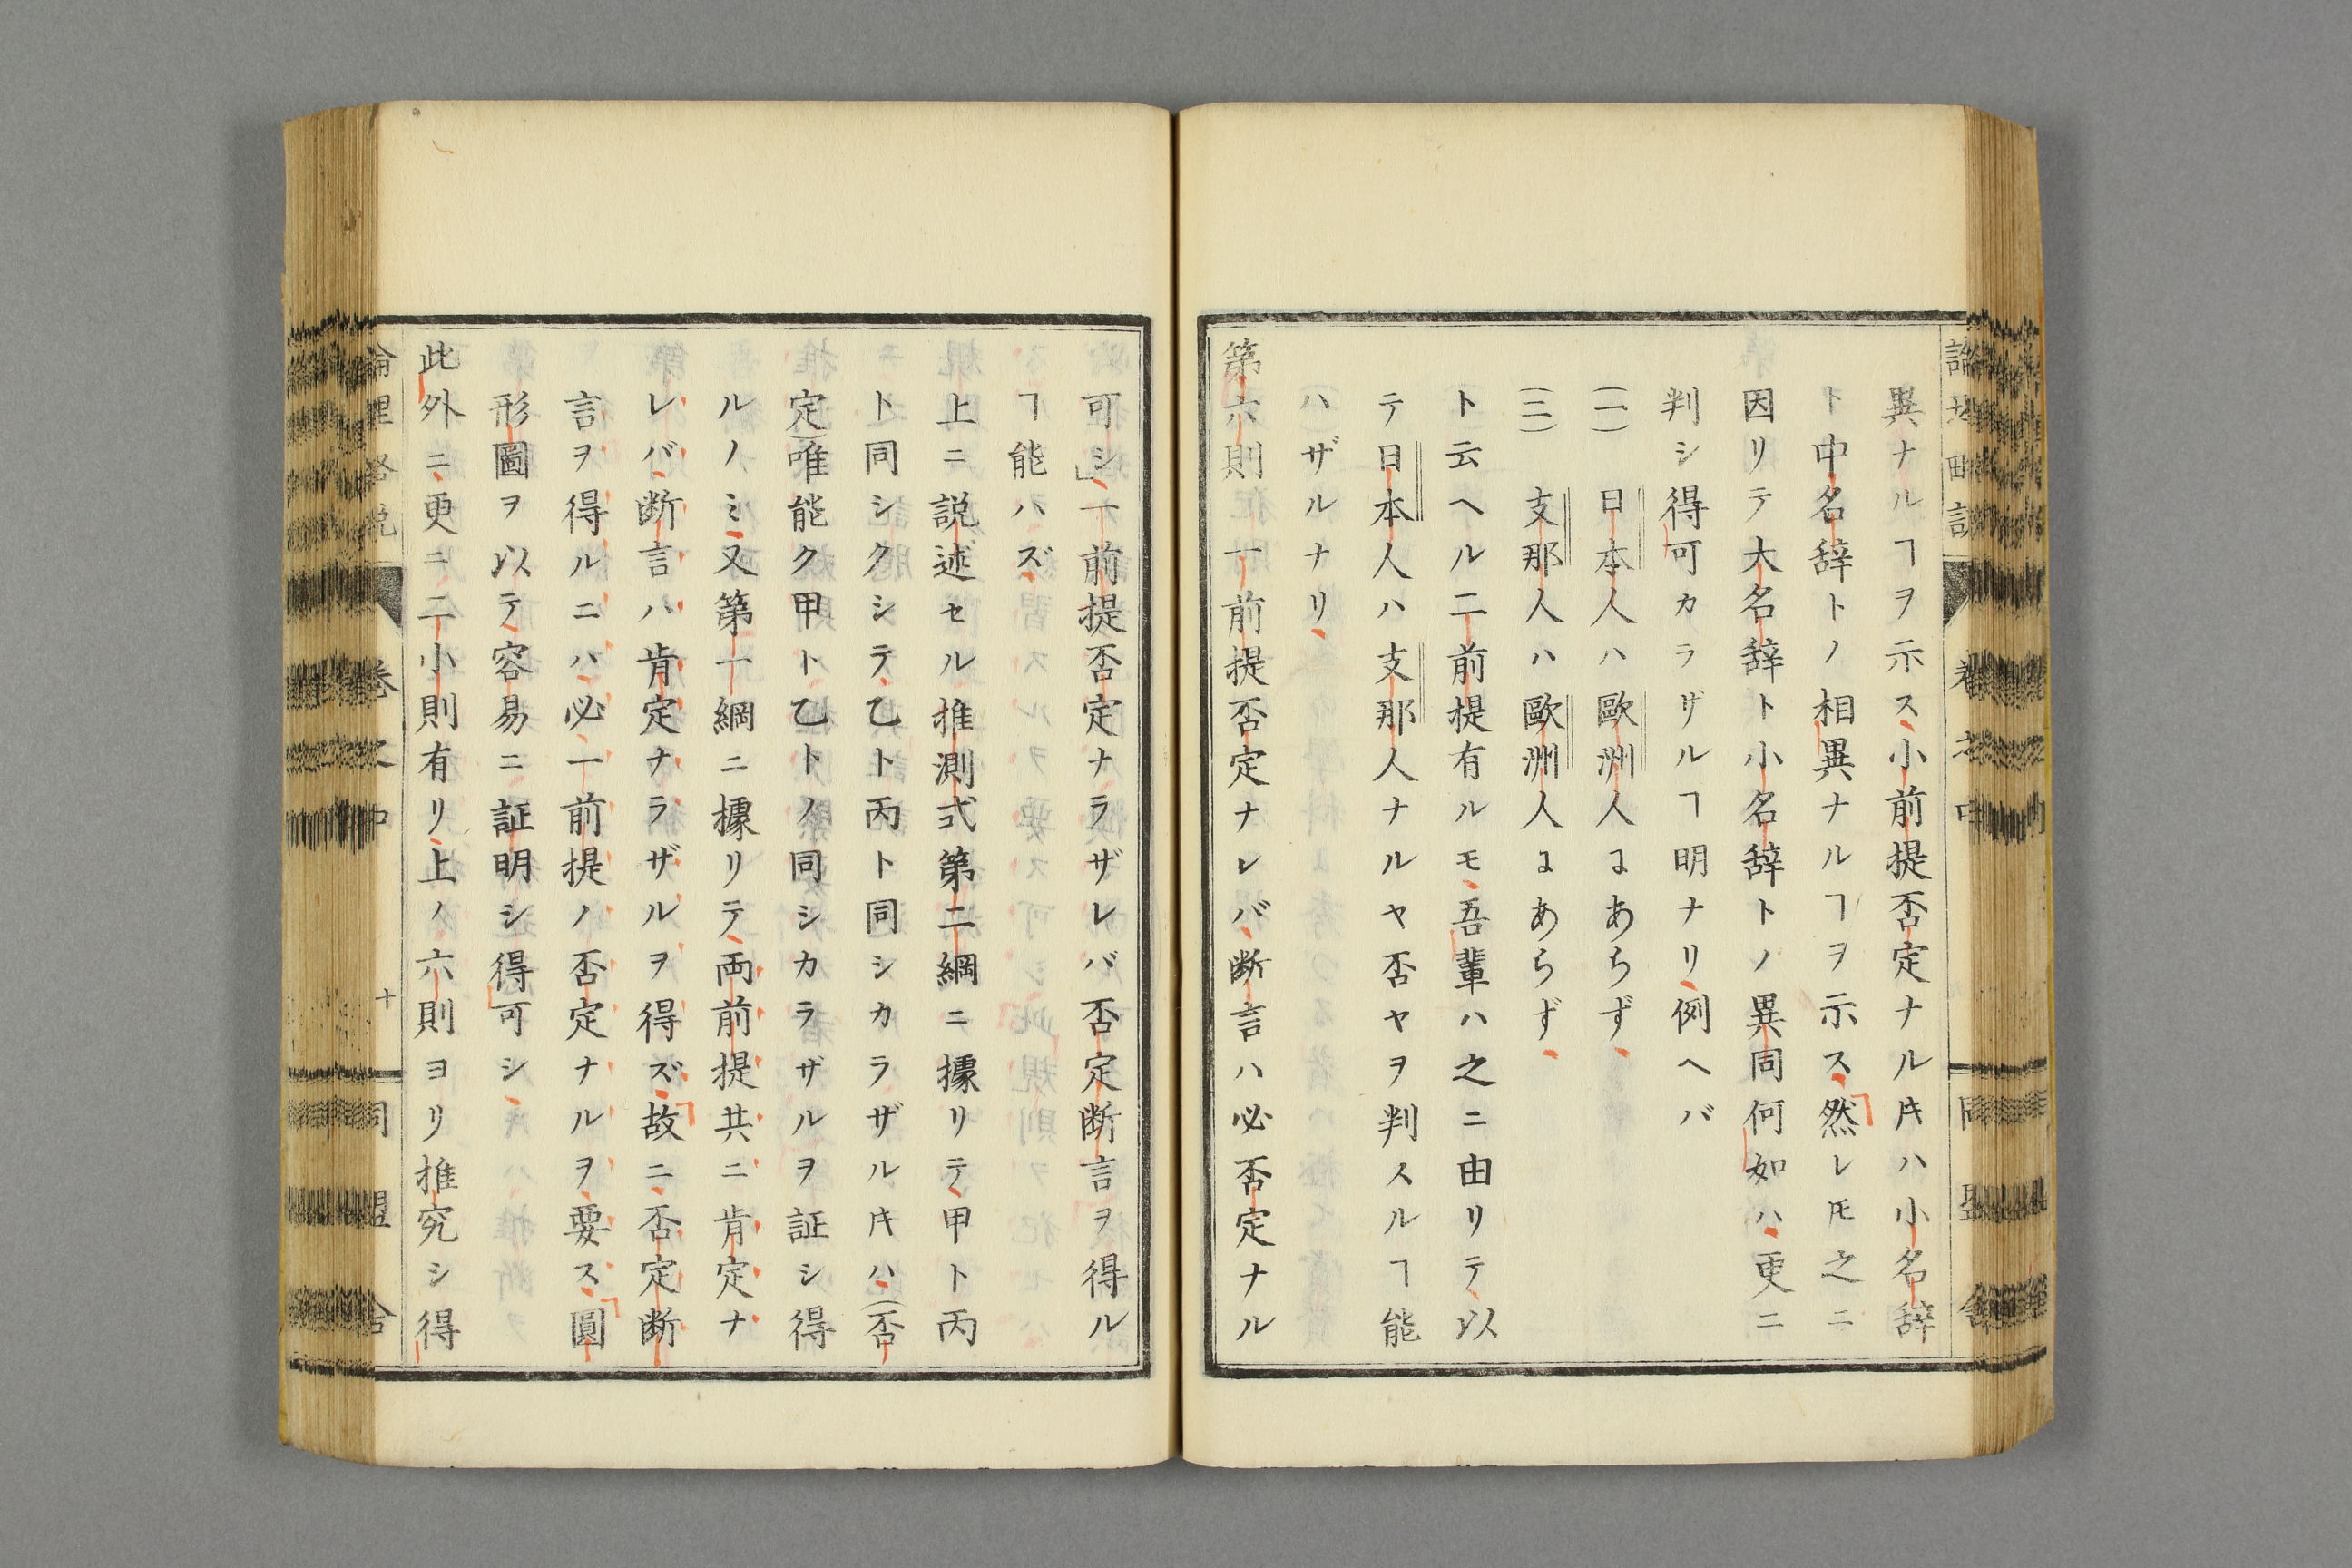 異ナルヿヲ示ス、小前提否定ナル𪜈ハ小名辞
ト中名辞トノ相異ナルヿヲ示ス、然レ𪜈之ニ
因リテ大名辞ト小名辞トノ異同何如ハ、更ニ
判シ得可カラザルヿ明ナリ、例ヘバ
(一) 日本人ハ歐洲人にあらず、
(二) 支那人ハ歐洲人にあらず、
ト云ヘル二前提有ルモ、吾輩ハ之ニ由リテ、以
テ日本人ハ支那人ナルヤ否ヤヲ判スルヿ能
ハザルナリ、
第六則 一前提否定ナレバ、断言ハ必否定ナル
可シ、」一前提否定ナラザレバ否定断言ヲ得ル
ヿ能ハズ、
上ニ説述セル推測式第二綱ニ據リテ、甲ト丙
ト同シクシテ、乙ト丙ト同シカラザルキハ、(否
定)唯能ク甲ト乙トノ同シカラザルヲ証シ得
ルノミ、又第一綱ニ據リテ、両前提共ニ肯定ナ
レバ、断言ハ肯定ナラザルヲ得ズ、故ニ、否定断
言ヲ得ルニハ、必一前提ノ否定ナルヲ、要ス、圓
形圖ヲ以テ、容易ニ証明シ得可シ、
此外ニ、更ニ二小則有リ、上ノ六則ヨリ推究シ得
卷之中
十
同盟舍